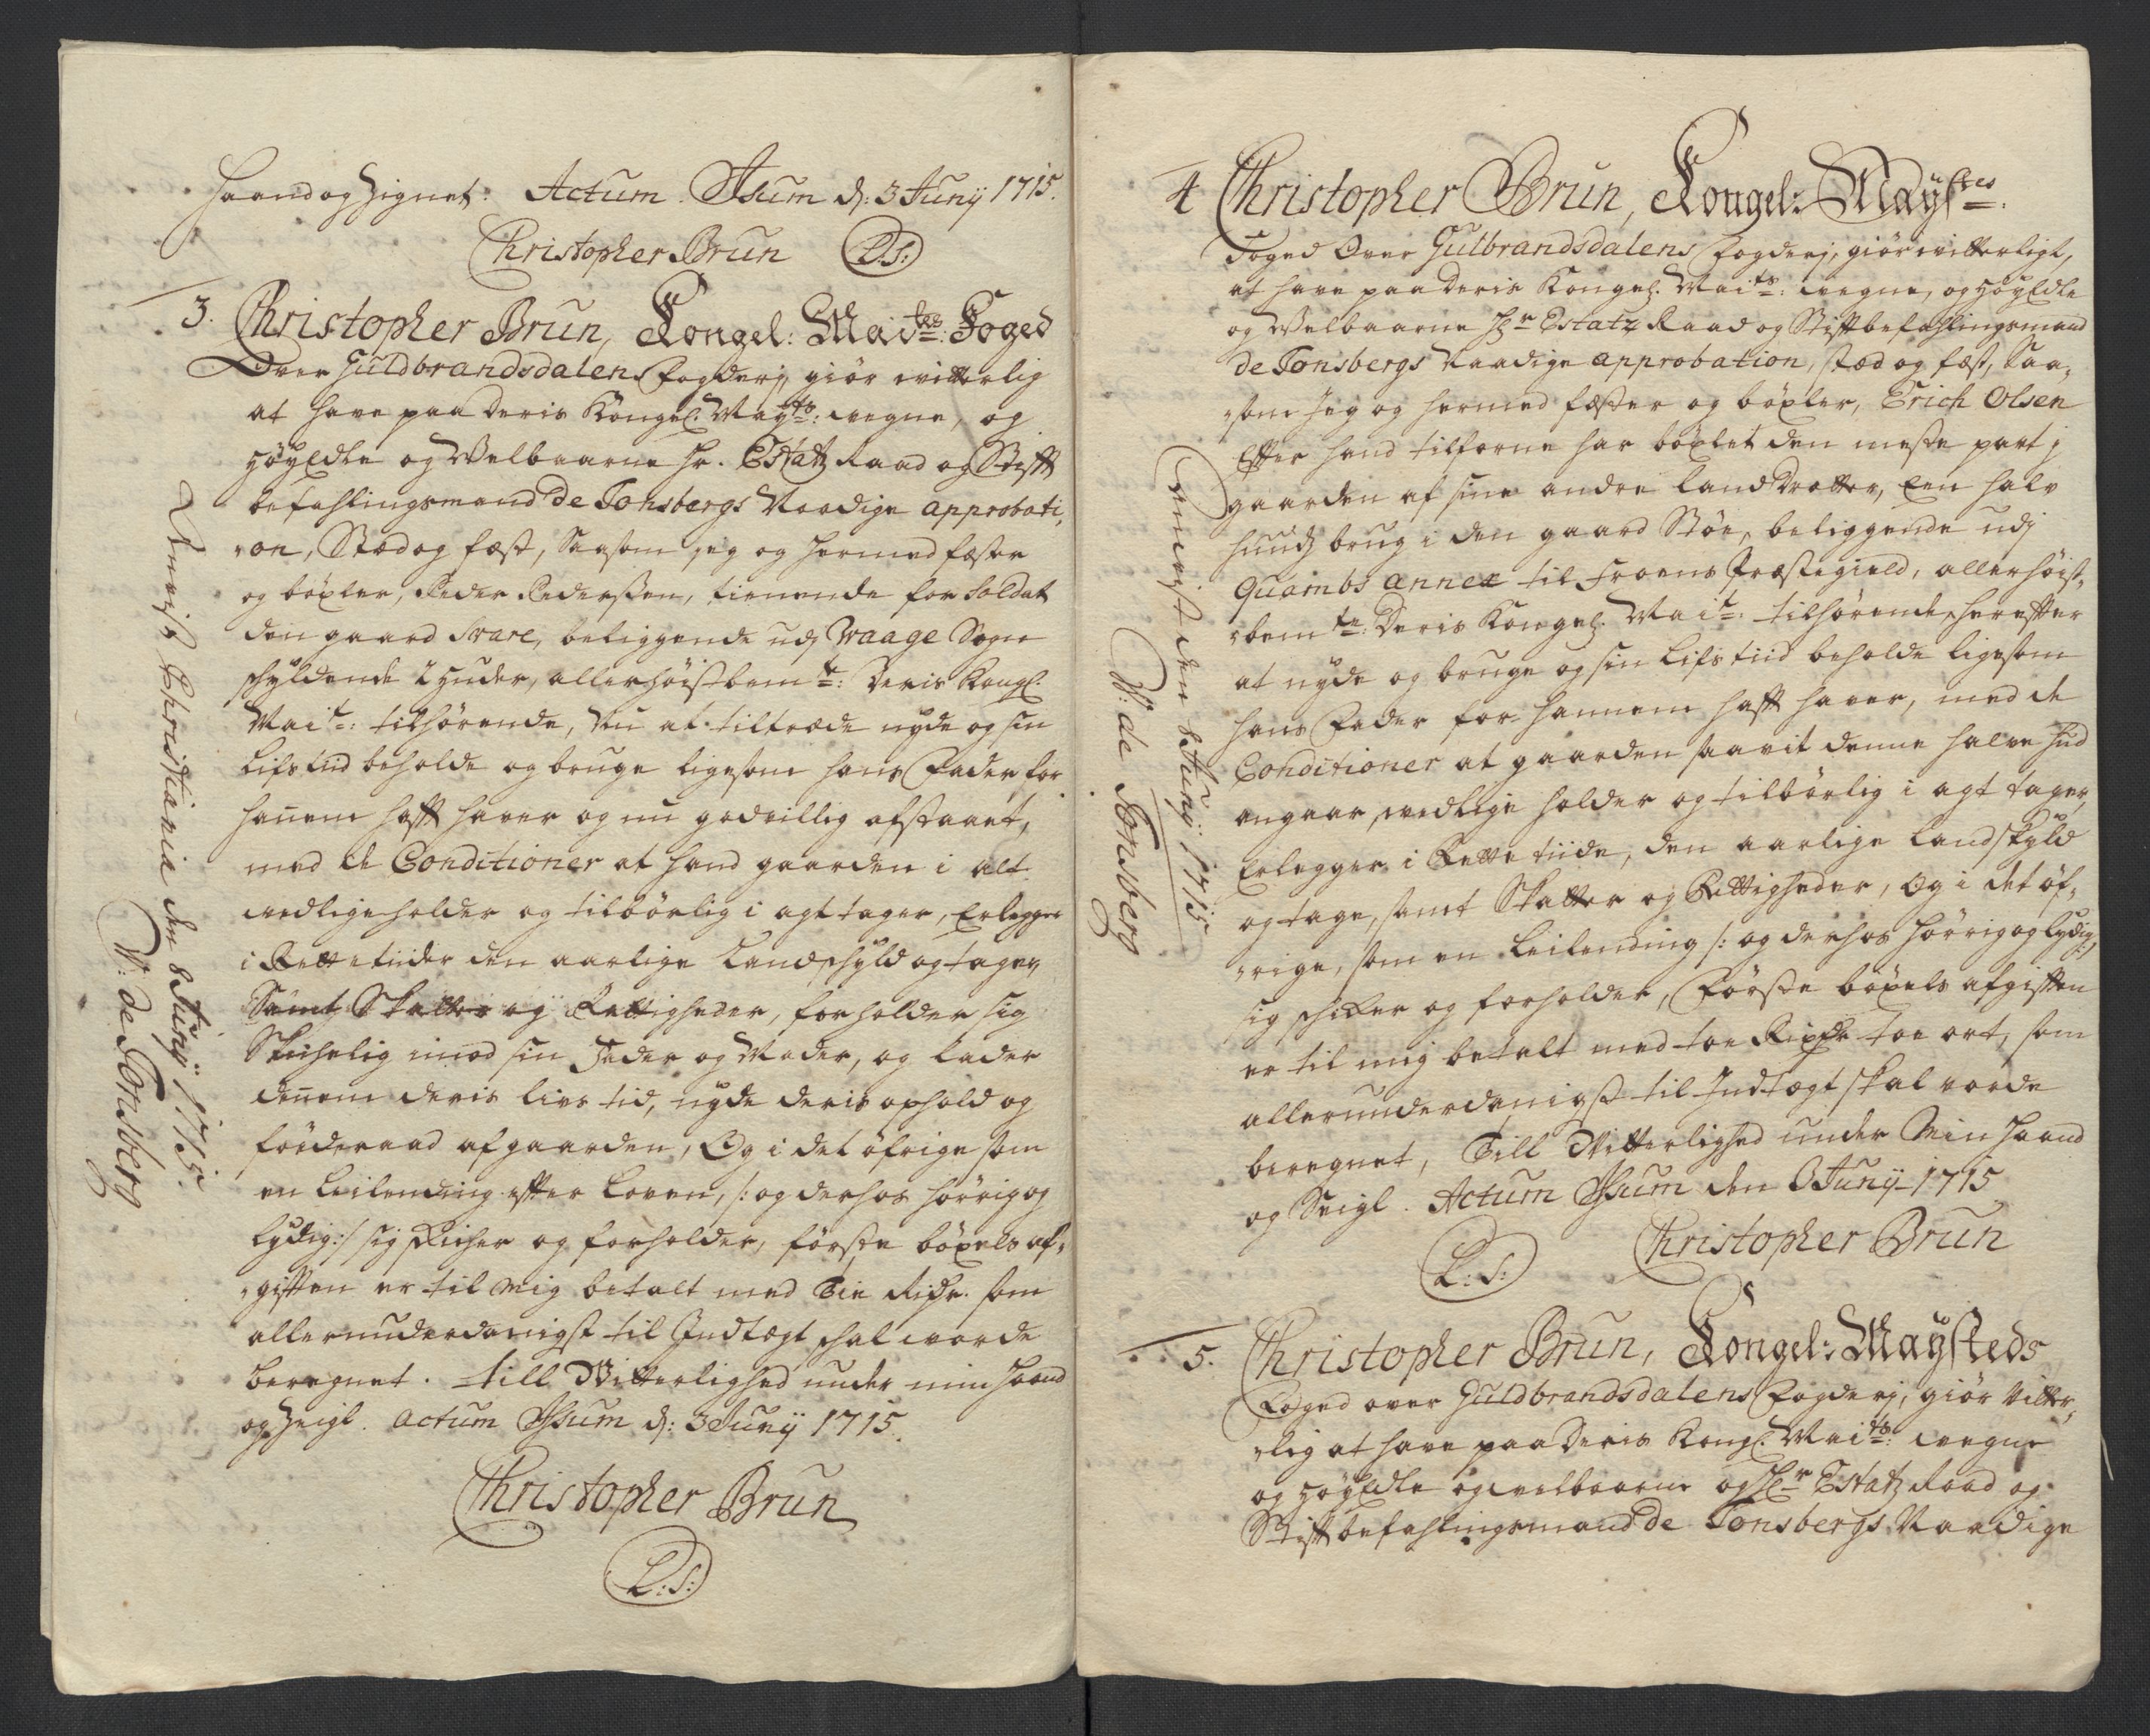 Haand og Zignet: Actum Isum d: 3 Junij 1715.
Christopher Brun L:S:
3. Christopher Brun, Kongel: Maits: Foged
Over Guldbrandsdalens fogderj, giör witterlig
at have paa Deris Kongel: Mayts: vegne, og
Höyædle og Welbaarne Hr. Estatz Raad og Stifft
befahlingsmand de Tonsbergs Naadige approbati,
„on, Stæd og fæst, Saasom jeg og hermed fæster
og böxler, Peder Pedersen, tienende for Soldat
den gaard Svare, beliggende udj Waage Sogn
schyldende 2 Huder, allerhöistbemte: Deris Kongl.
Mait: tilhörende, Nu at tiltræde nyde og sin
Lifs tiid beholde og bruge ligesom hans Fader for
hannem hafft hafver og nu godvillig afstaaet,
med de Conditioner at hand gaarden i alt
vedligeholder og tilbörlig i agt tager, Erlegger
i Rette tiider den aarlige Landschyld og tager
Samt Skatter og Rettigheder, forholder sig
Skichelig imod sin Fader og Moder, og lader
dennem deris livs tid, nyde deris ophold og
föderaad af gaarden, Og i det öfrige som
en Leilending efter Loven, /: og derhos hörrig og
lydig :/ sig schicher og forholder, förste böxels af„
„gifften er til mig betalt med Tie Rdr. som
allerunderdanigst til Indtægt schal worde
beregnet. till Witterlighed under min Haand
og Zeigl. Actum Isum d: 3 Junij 1715.
Christopher Brun
L:S:
Anvist Christiania den 8 Junij 1715.
W: de Tonsberg
4 Christopher Brun, Kongel: Mayts.
Foged Over Gulbrandsdalens fogderj, giör witterligt,
at have paa Deris Kongel. Maits: vegne, og Höyædle
og Welbaarne Hr Estatz Raad og Stifftbefahlingsmand
de Tonsbergs Naadige approbation, stæd og fæst, Saa„
„som Jeg og hermed fæster og böxler, Erich Olsen
Efter hand tilforne har böxlet den meste part j
gaarden af sine andre Land Drotter, Een halv
huuds brug i den gaard Stöe, beliggende udj
Quambs annex til Froens Præstegield, allerhöist„
„bemte: Deris Kongel. Mait: tilhörende, herefter
at nyde og bruge og sin Lifs tiid beholde ligesom
hans Fader for hannem hafft haver, med de
Conditioner at gaarden saavit denne halve Hud
angaar, vedlige holder og tilbörlig i agt tager,
Erlegger i Rette tiide, den aarlige Landskyld
og tage, samt Skatter og Rettigheder, Og i det öf„
„rige, som en Leilending /: og derhos hörrig og lydig :/
sig schicker og forholder, Förste böxels afgifften
er til mig betalt med toe Rixdr toe ort, som
allerunderdanigst til Indtægt skal vorde
beregnet, Till Witterlighed under Min Haand
og Seigl. Actum Isum den 6 Junij 1715
Christopher Brun
L:S:
Anvist den 8 Junij 1715
W: de Tonsberg
5. Christopher Brun, Kongel: Maysteds
Foged over Guldbrandsdalens Fogderj, giör vitter„
„lig at have paa Deris Kongl. Maits: vegne
og Höyædle og velbaarne og Hr Estatz Raad og
Stifft befahlingsmand de Tonsbergs Naadige